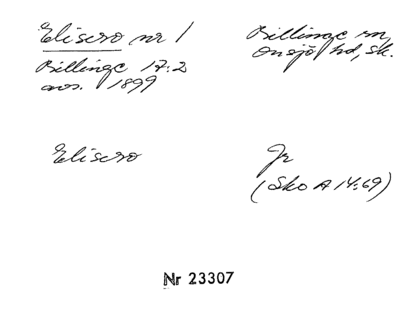 Elisero nr 1
Billinge sn,
Onsjö hd, sk.
Billinge 17:2
avs. 1899
Elisero
Jr
(Sko A 14:69)
Nr 23307